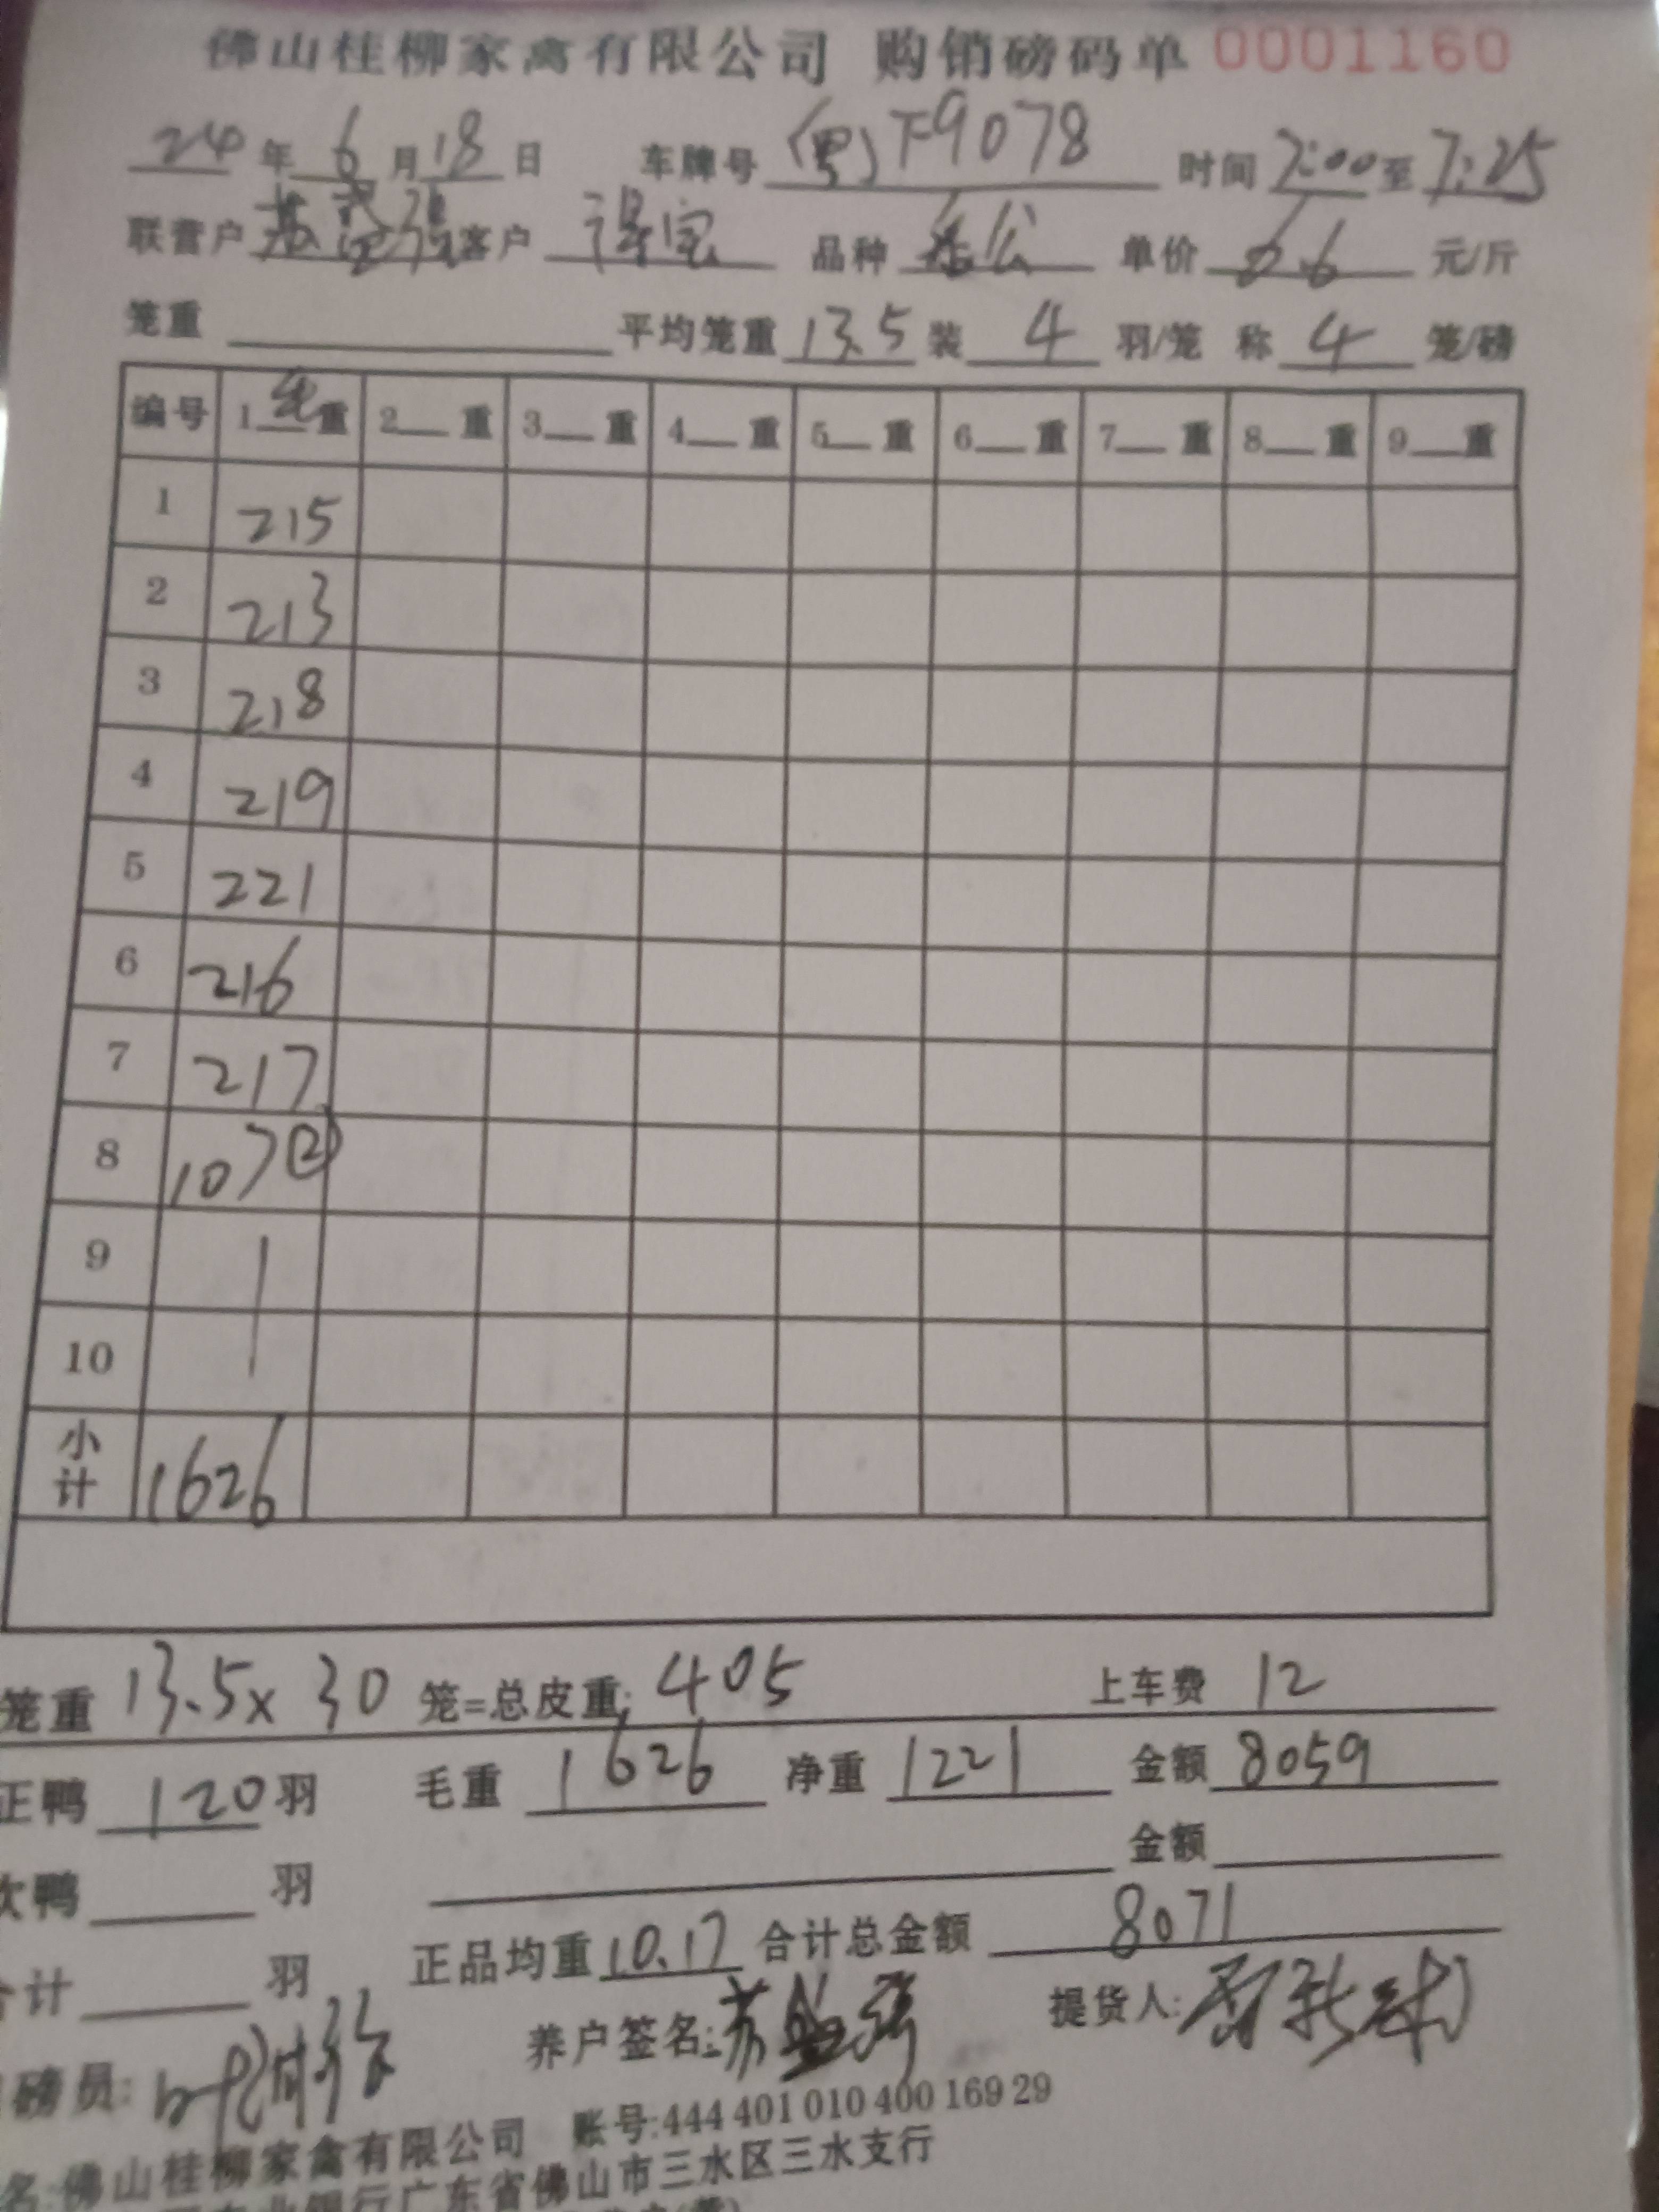 佛山桂柳家禽有限公司 购销磅码单 0001160
24年 6月18日 车牌号 (粤)F9078 时间 7:00至7:25
联营户 苏 强 客户 得宝 品种 公 单价 6.6 元/斤
笼重 平均笼重 13.5 装 4 羽/笼 称 4 笼/磅
编号 1毛重 2 重 3 重 4 重 5 重 6 重 7 重 8 重 9 重
1 215
2 213
3 218
4 219
5 221
6 216
7 217
8 107②
9
10
小计 1626
笼重 13.5x 30 笼=总皮重: 405 上车费 12
正鸭 120羽 毛重 1626 净重 1221 金额 8059
次鸭 羽 金额
合计 羽 正品均重 10.17 合计总金额 8071
磅员: 养户签名: 苏 强 提货人:
名:佛山桂柳家禽有限公司 账号:444 401 010 400 169 29
业银行广东省佛山市三水区三水支行